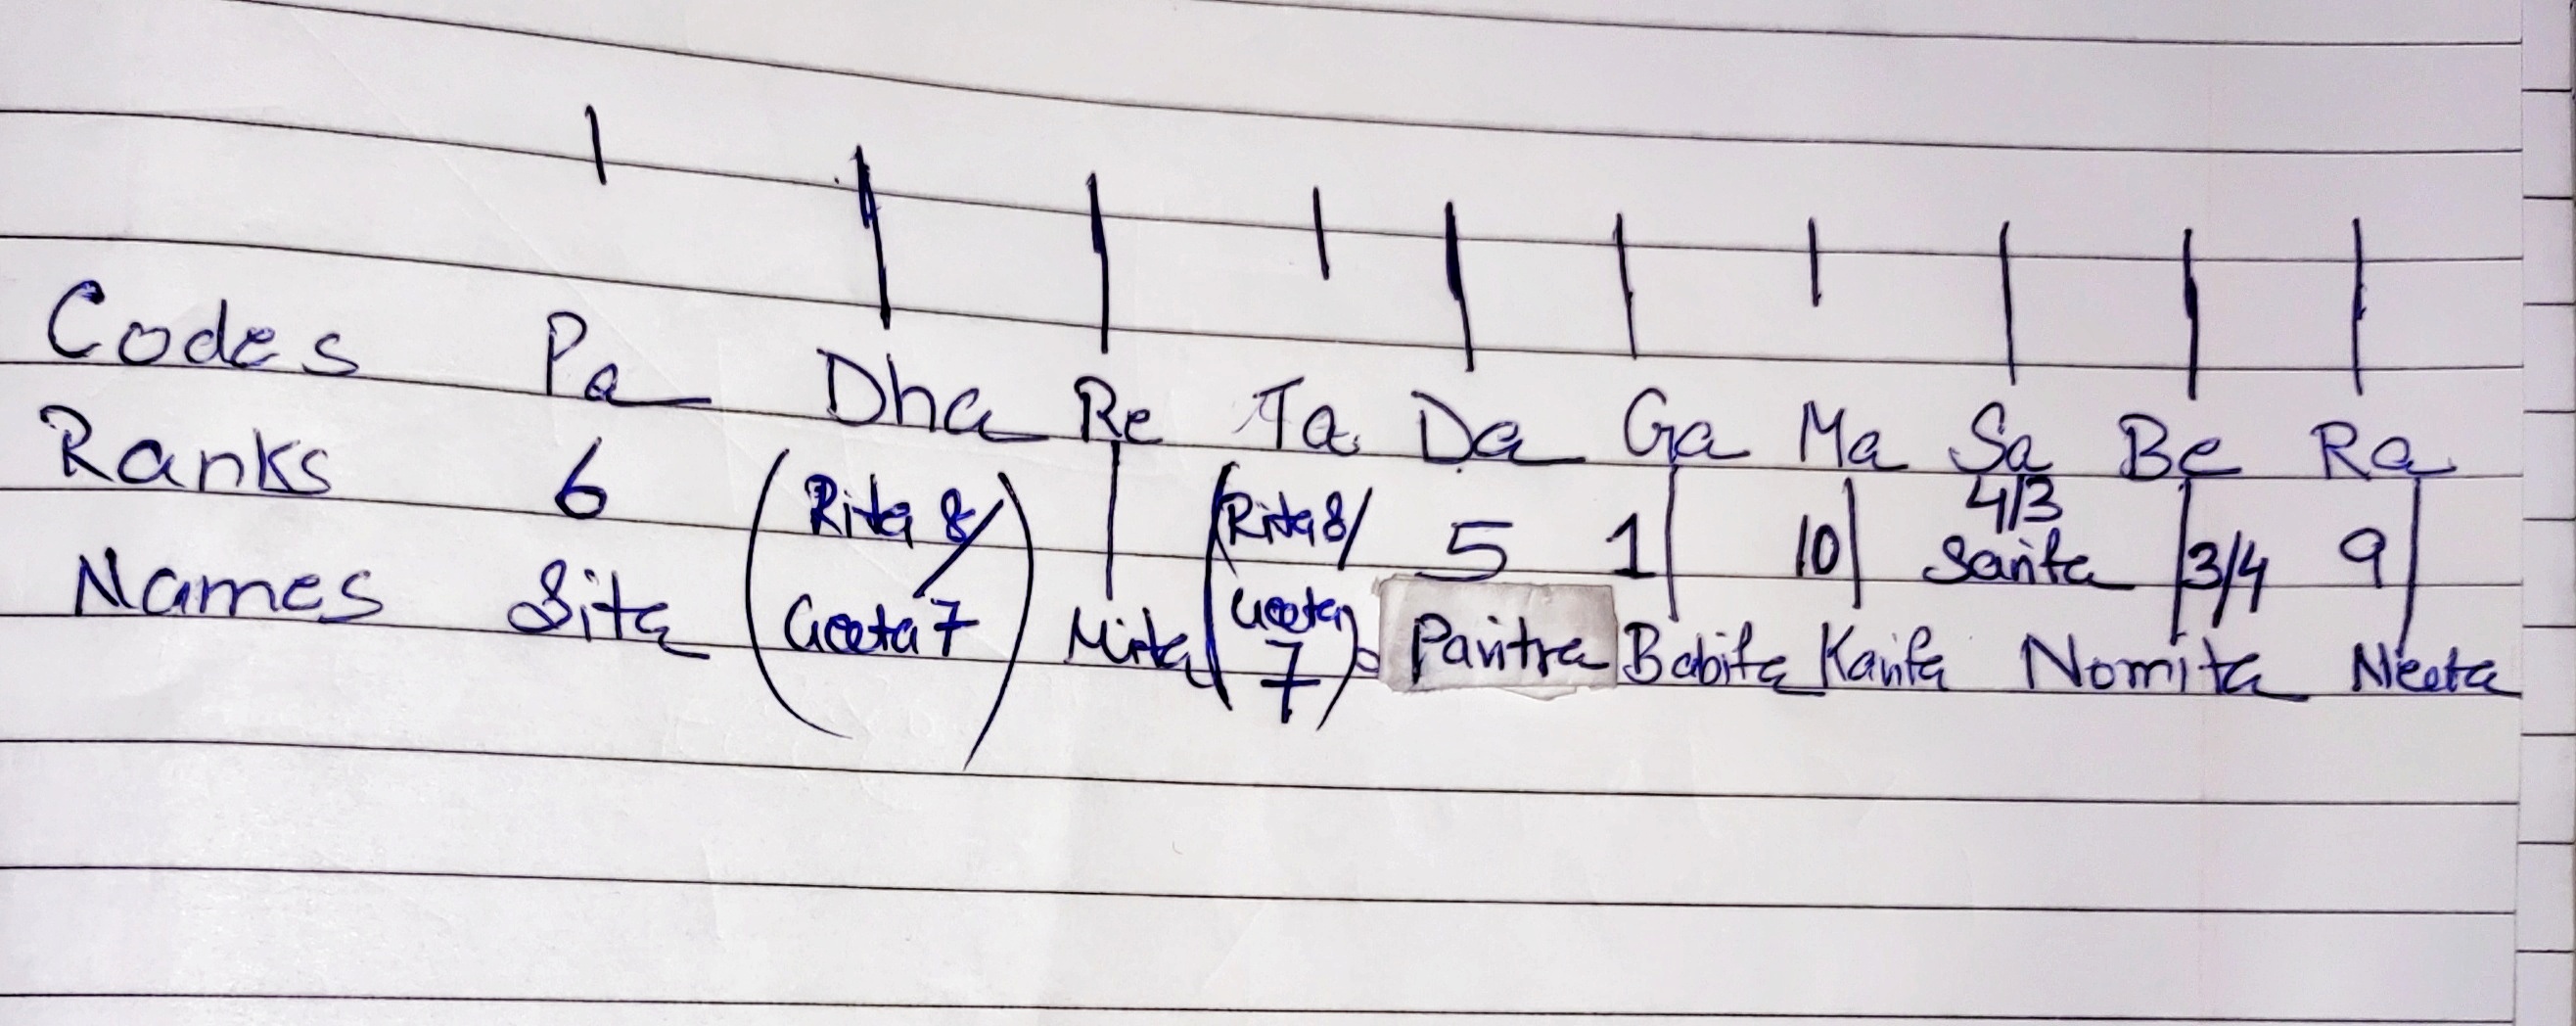 Codes Pa Dha Re Ta Da Ga Ma Sa Be Ra
Ranks 6 (Rita 8/ | (Rita 8/ 5 1| 10| 4/3 |3/4 9|
Names Sita Geeta 7) Mita Geeta 7) Pavitra Babita Kavita Sarita Nomita Neeta